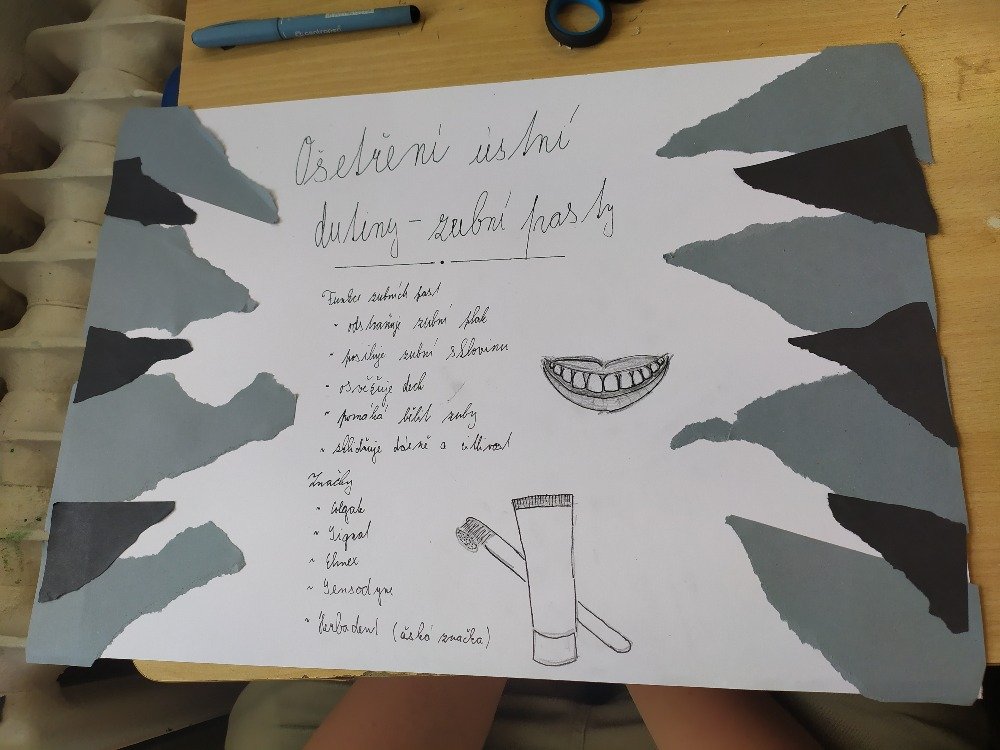 centropen
Ošetření ústní
dutiny - zubní pasty
Funkce zubních past
- odstraňuje zubní plak
- posiluje zubní sklovinu
- osvěžuje dech
- pomáhá bělit zuby
- zklidňuje dásně a citlivost
Značky
- Colgate
- Signal
- Elmex
- Sensodyne
- Herbadent (česká značka)